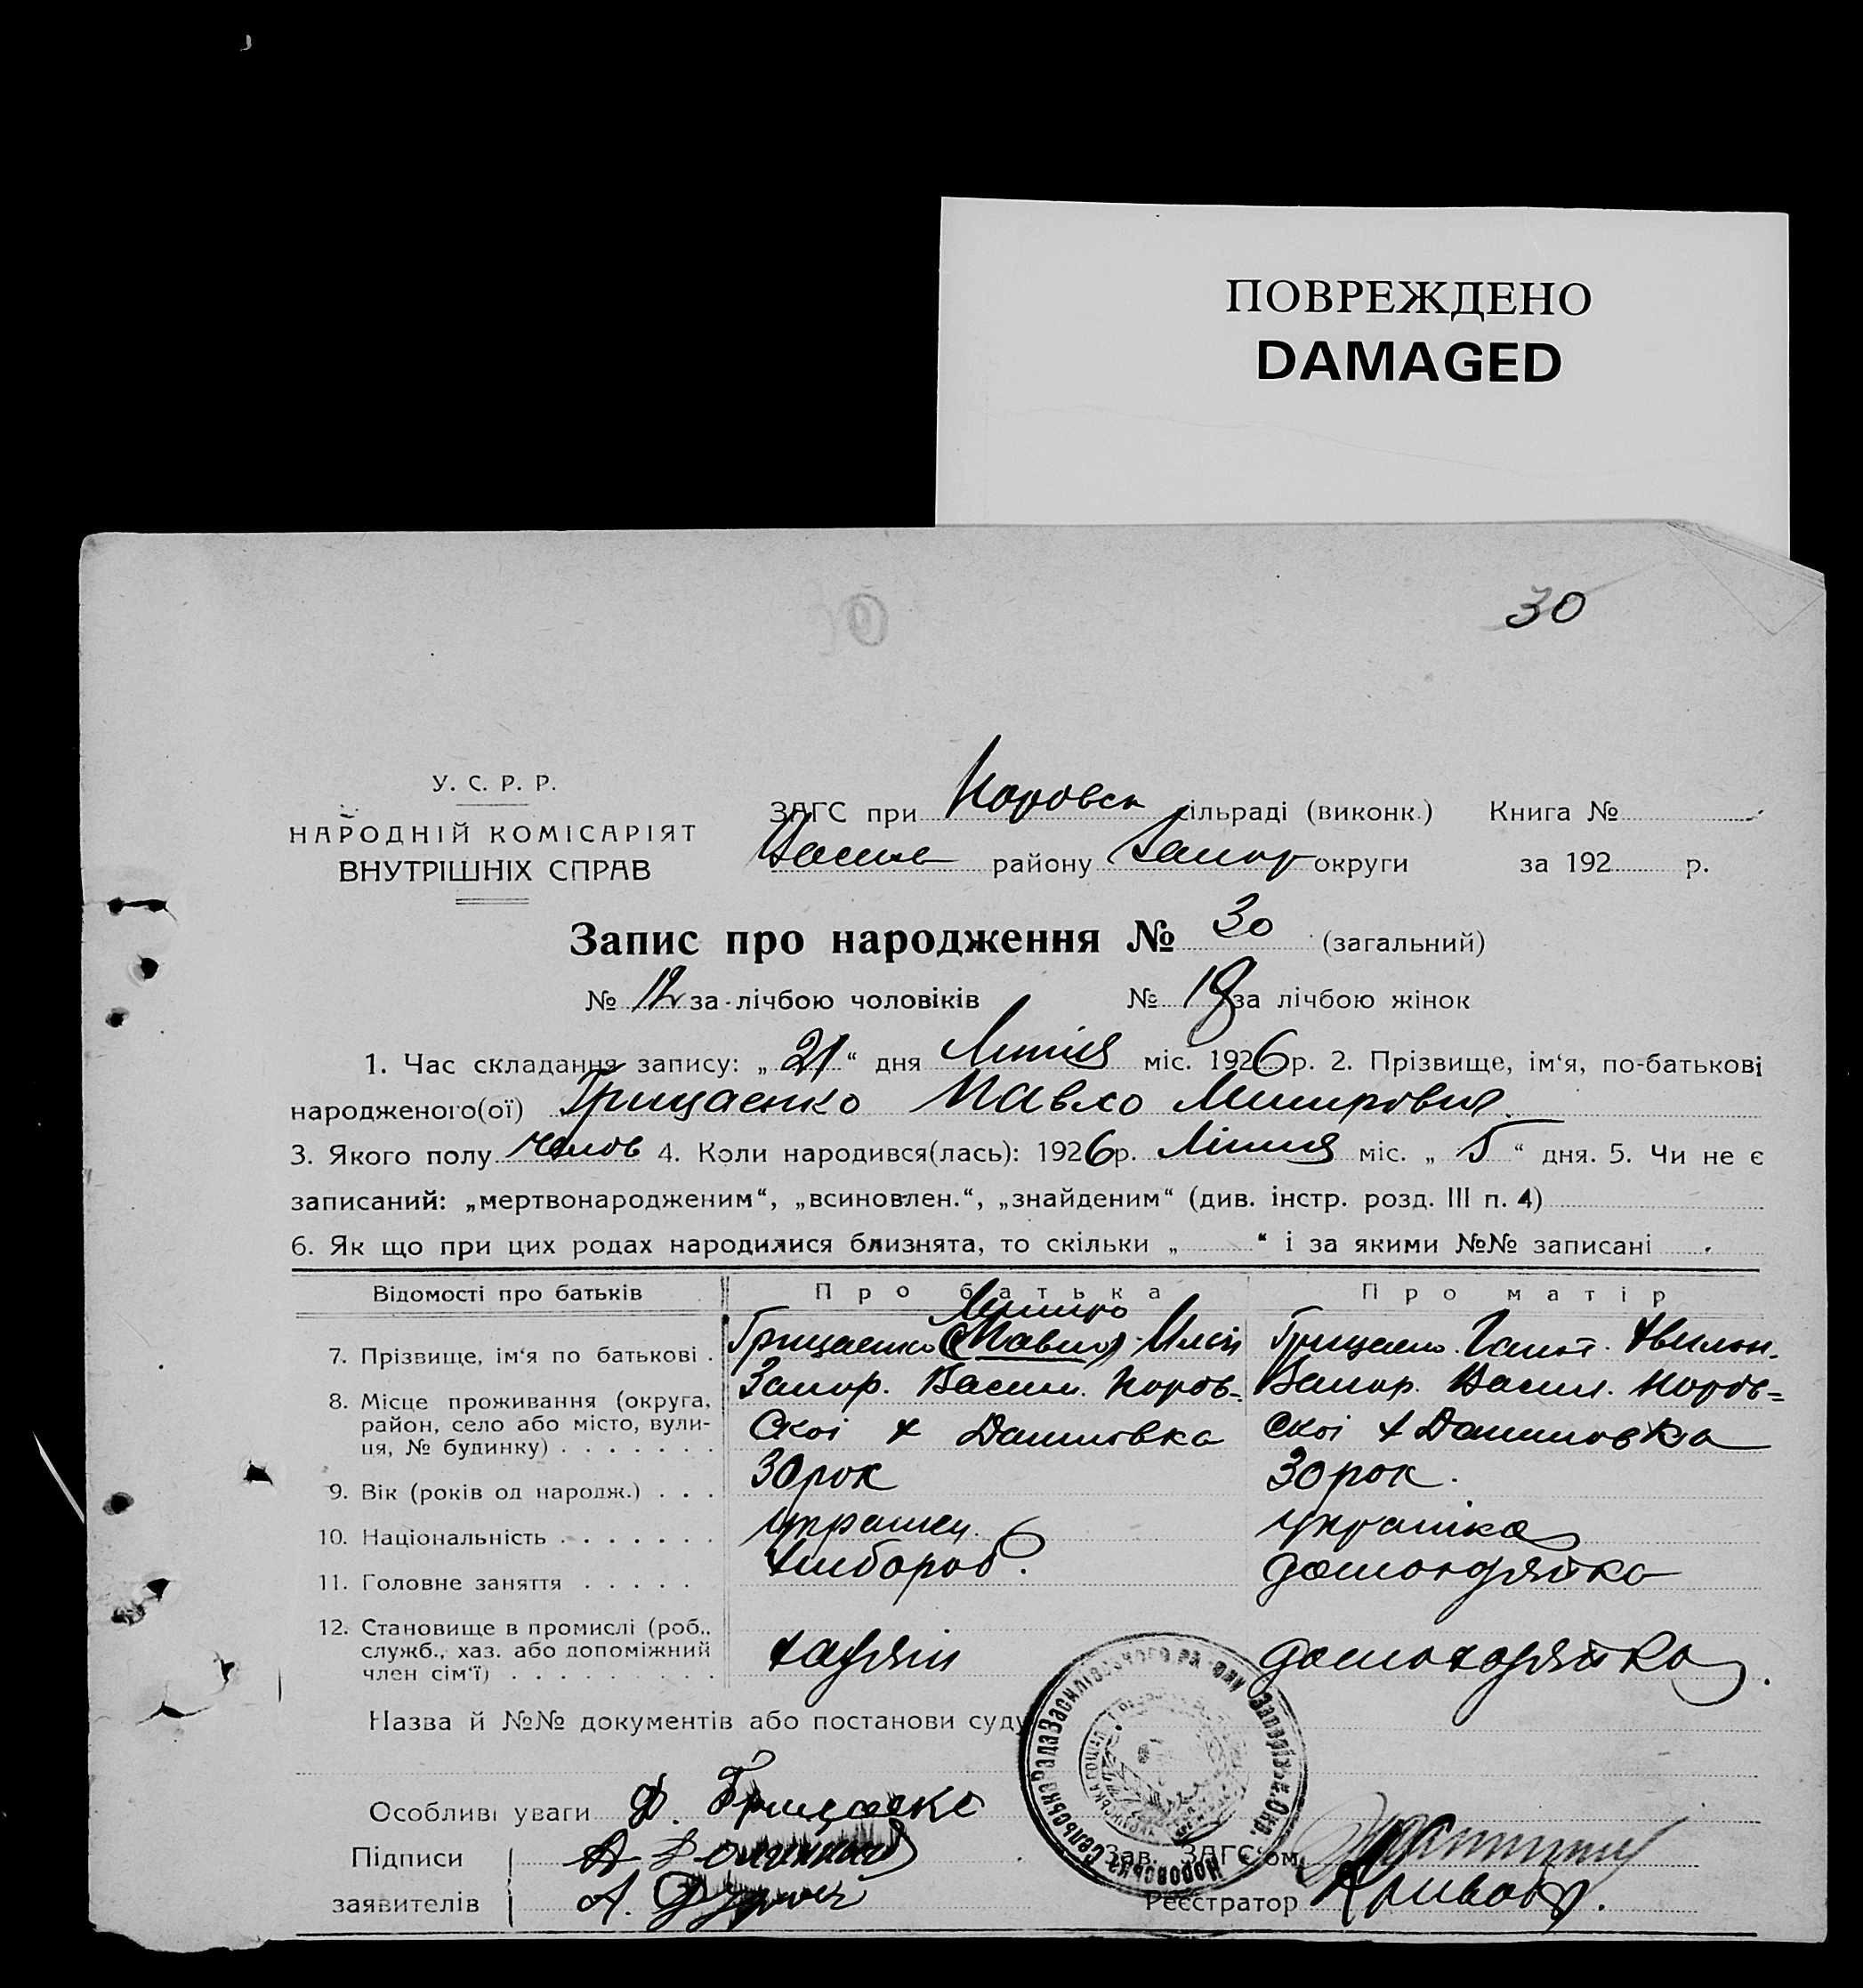 ПОВРЕЖДЕНО
DAMAGED
30
У. С. Р. Р.
НАРОДНІЙ КОМІСАРІЯТ
ВНУТРІШНІХ СПРАВ
ЗАГС при Норовск сільраді (виконк.) Книга №
Васил району Запор округи за 192 р.
Запис про народження № 30 (загальний)
№ 12 за лічбою чоловіків № 18 за лічбою жінок
1. Час складання запису: „ 21 “ дня Липня міс. 1926 р. 2. Прізвище, ім‘я, по-батькові
народженого(ої) Грицаенко Павло
3. Якого полу Челов 4. Коли народився(лась): 1926 р. Липня міс. „ 5 “ дня. 5. Чи не є
записаний: „мертвонародженим“, „всиновлен.“, „знайденим“ (див. інстр. розд. III п. 4)
6. Як що при цих родах народилися близнята, то скільки „ “ і за якими №№ записані
Відомості про батьків Про батька Про матір
7. Прізвище, ім‘я по батькові . Грицаенко (Павло)
8. Місце проживання (округа, Запор. Васил. Норов- Запор. Васил. Норов=
район, село або місто, вули- скоі х Даниловка скоі х Даниловка
ця, № будинку) . . . . . . .
9. Вік (років од народж.) . . . 30 рок 30 рок.
10. Національність . . . . . . . Украинец Украінка
11. Головне заняття . . . . . Хлибороб. домохозяйка
12. Становище в промислі (роб..
служб., хаз. або допоміжний хазяін домохозяйка
член сім‘ї) . . . . . . . . .
Назва й №№ документів або постанови суду
Особливі уваги
Підписи Зав. ЗАГС‘ом
заявителів Реєстратор